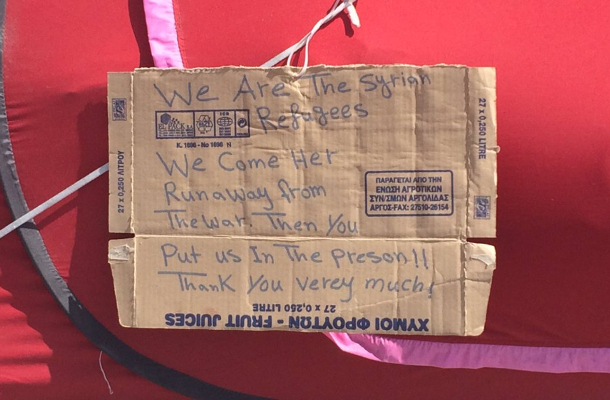 We Are The Syrian
Refugees
K. 1696 - No 1696 H
We Come Her
Runaway from
The war. Then You
Put us In The preson!!
Thank You verey much!
27 x 0,250 ΛΙΤΡΟΥ
27 x 0,250 LITRE
ΠΑΡΑΓΕΤΑΙ ΑΠΟ ΤΗΝ
ΕΝΩΣΗ ΑΓΡΟΤΙΚΩΝ
ΣΥΝ/ΣΜΩΝ ΑΡΓΟΛΙΔΑΣ
ΑΡΓΟΣ-FAX: 27510-26154
27 x 0,250 LITRE
ΧΥΜΟΙ ΦΡΟΥΤΩΝ - FRUIT JUICES